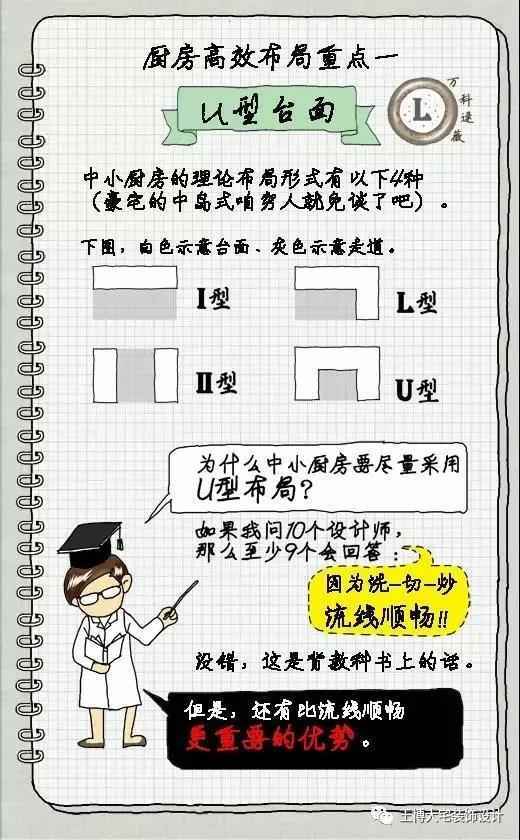 厨房高效布局重点一
U型台面
L
万科速薇
中小厨房的理论布局形式有以下4种
（豪宅的中岛式咱穷人就免谈了吧）。
下图，白色示意台面、灰色示意走道。
I型
L型
II型
U型
为什么中小厨房要尽量采用
U型布局？
如果我问10个设计师，
那么至少9个会回答：
因为洗-切-炒
流线顺畅!!
没错，这是背教科书上的话。
但是，还有比流线顺畅
更重要的优势。
土博大宅装饰设计